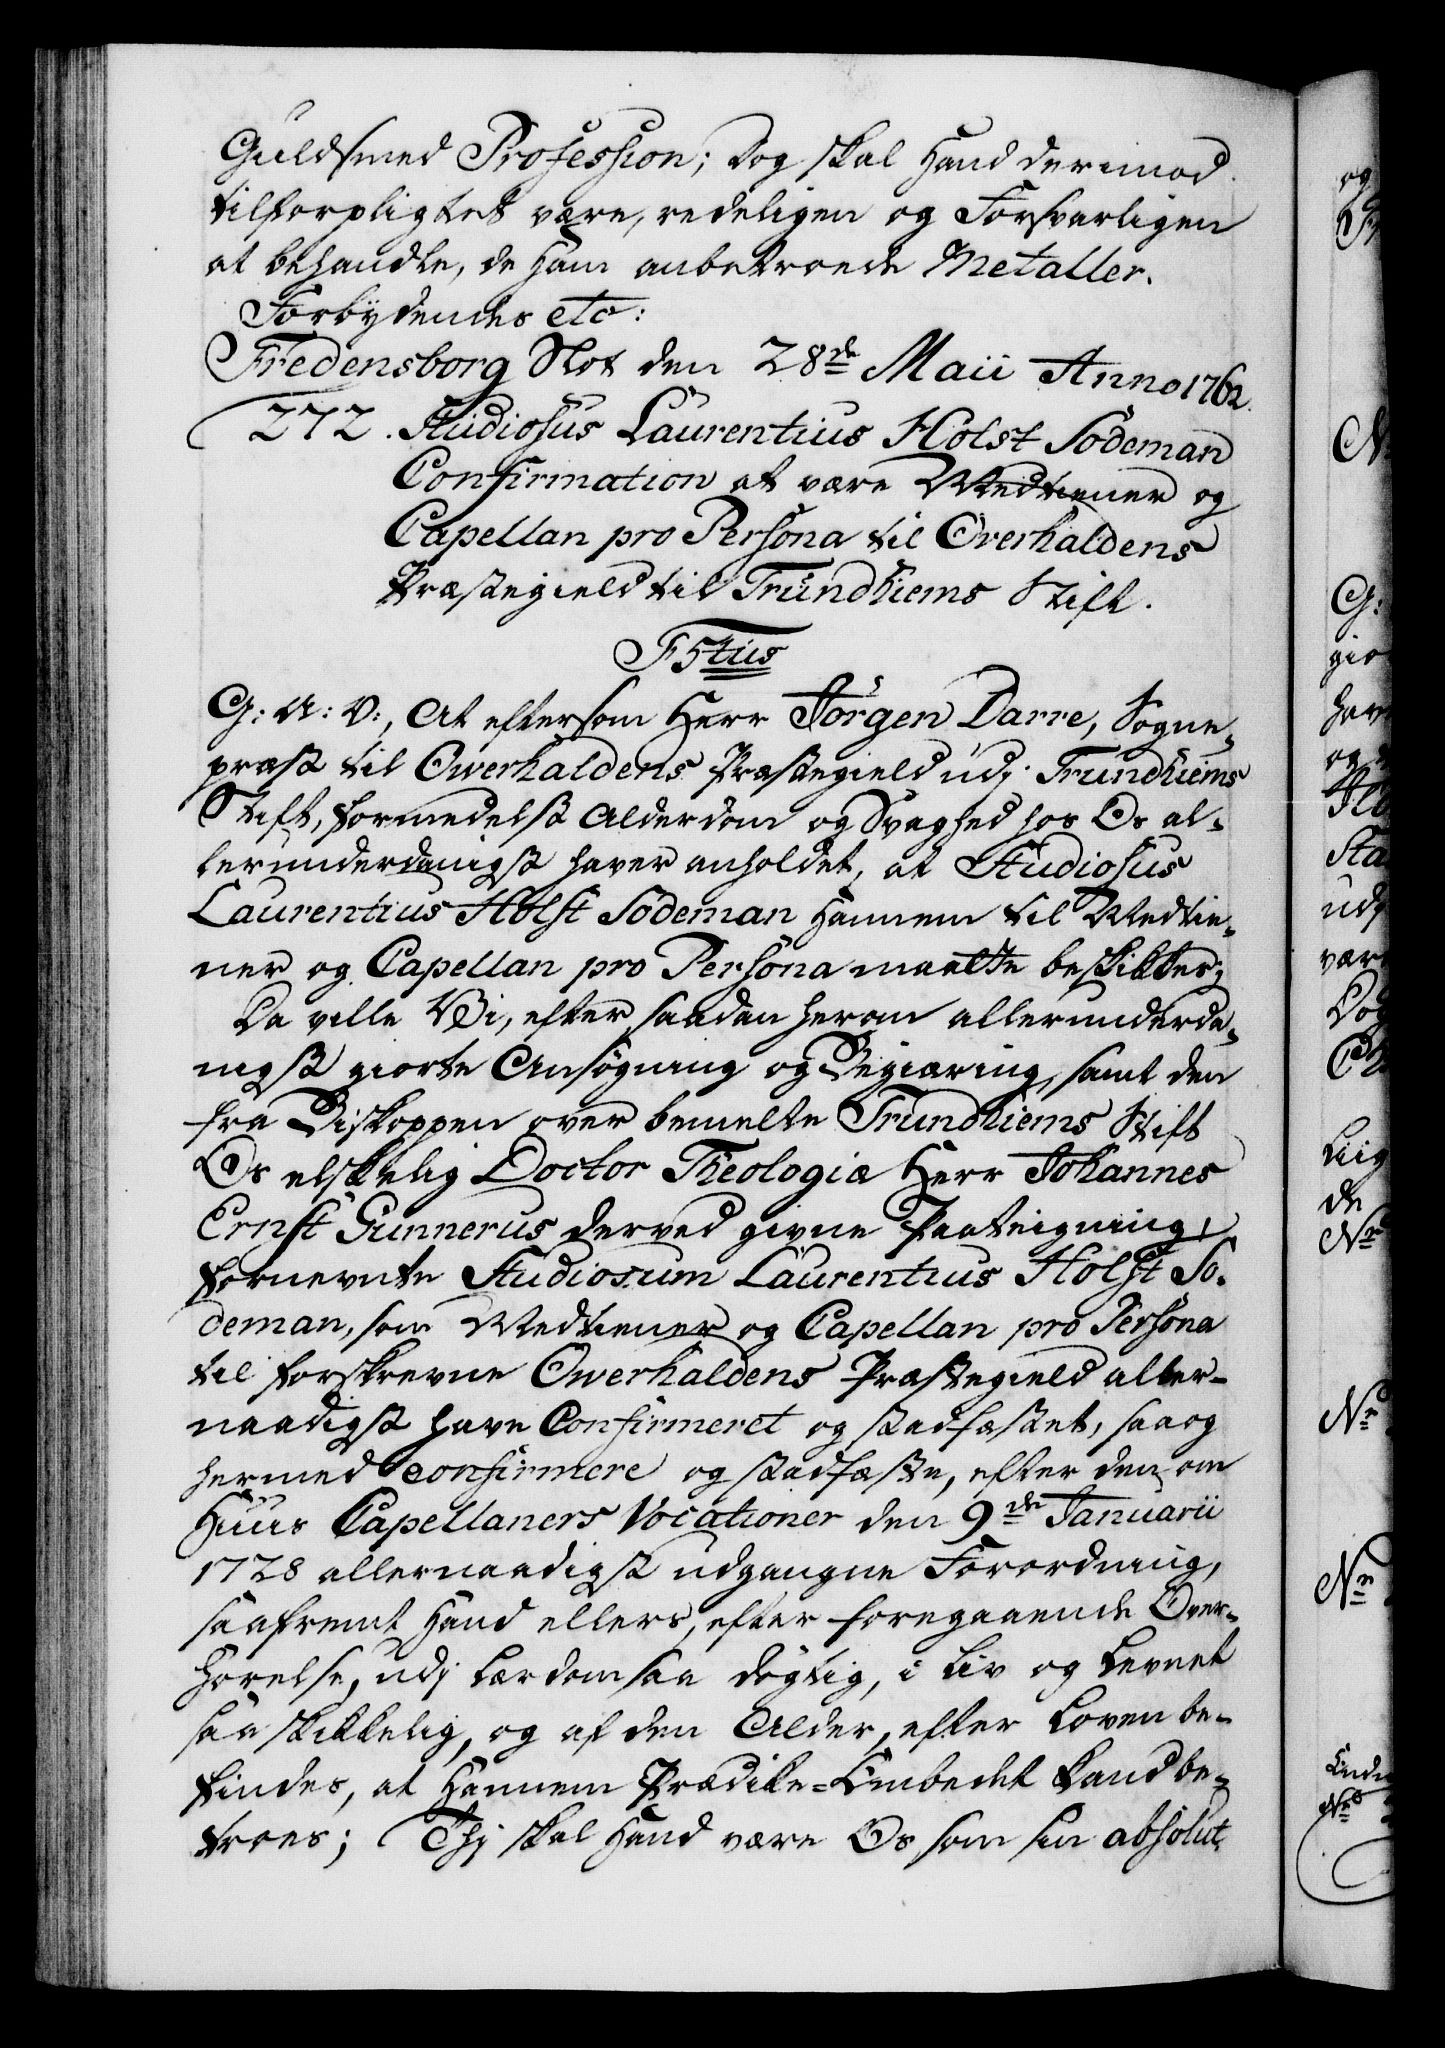 Guldsmed Profession; Dog skal Hand derimod
tilforpligtet være, redeligen og Forsvarligen
at behandle, de Ham anbetroede Metaller.
Forbydendes etc:
Fredensborg Slot den 28de Maii Anno 1762.
272. Studiosus Laurentius Holst Sodeman
Confirmation at være Medtiener og
Capellan pro Persona til Overhaldens
Præstegield til Trundhiems Stift.
F5tus
G: A: V:, At eftersom Herr Jörgen Darre, Sogne-
præst til Owerhaldens Præstegield udj Trundhiems
Stift, formedelst Alderdom og Svaghed hos Os al-
lerunderdanigst haver anholdet, at Studiosus
Laurentius Holst Sodeman Hannem til Medtie-
ner og Capellan pro Persona maatte beskikkes;
Da ville Vi, efter saadan herom allerunderda-
nigst giorte Ansøgning og Begiæring, samt den
fra Biskoppen over bemelte Trundhiems Stift
Os elskelig Doctor Theologiæ Herr Johannes
Ernst Gunnerus derved givne Paateigning,
fornevnte Studiosum Laurentius Holst So-
deman, som Medtiener og Capellan pro Persona
til forskrevne Owerhaldens Præstegield aller-
naadigst have Confirmeret og stadfæstet, saa og
hermed confirmere og stadfæste, efter den om
Huus Capellaners Vocationer den 9de Januarii
1728 allernaadigst udgangne Forordning,
saafremt Hand ellers, efter foregaaende Over-
hörelse, udj Lærdom saa dögtig, i Liv og Levnet
saa skikkelig, og af den Alder, efter Loven be-
findes, at Hannem Prædike-Embedet kand be-
troes; Thj skal Hand være Os som sin absolut